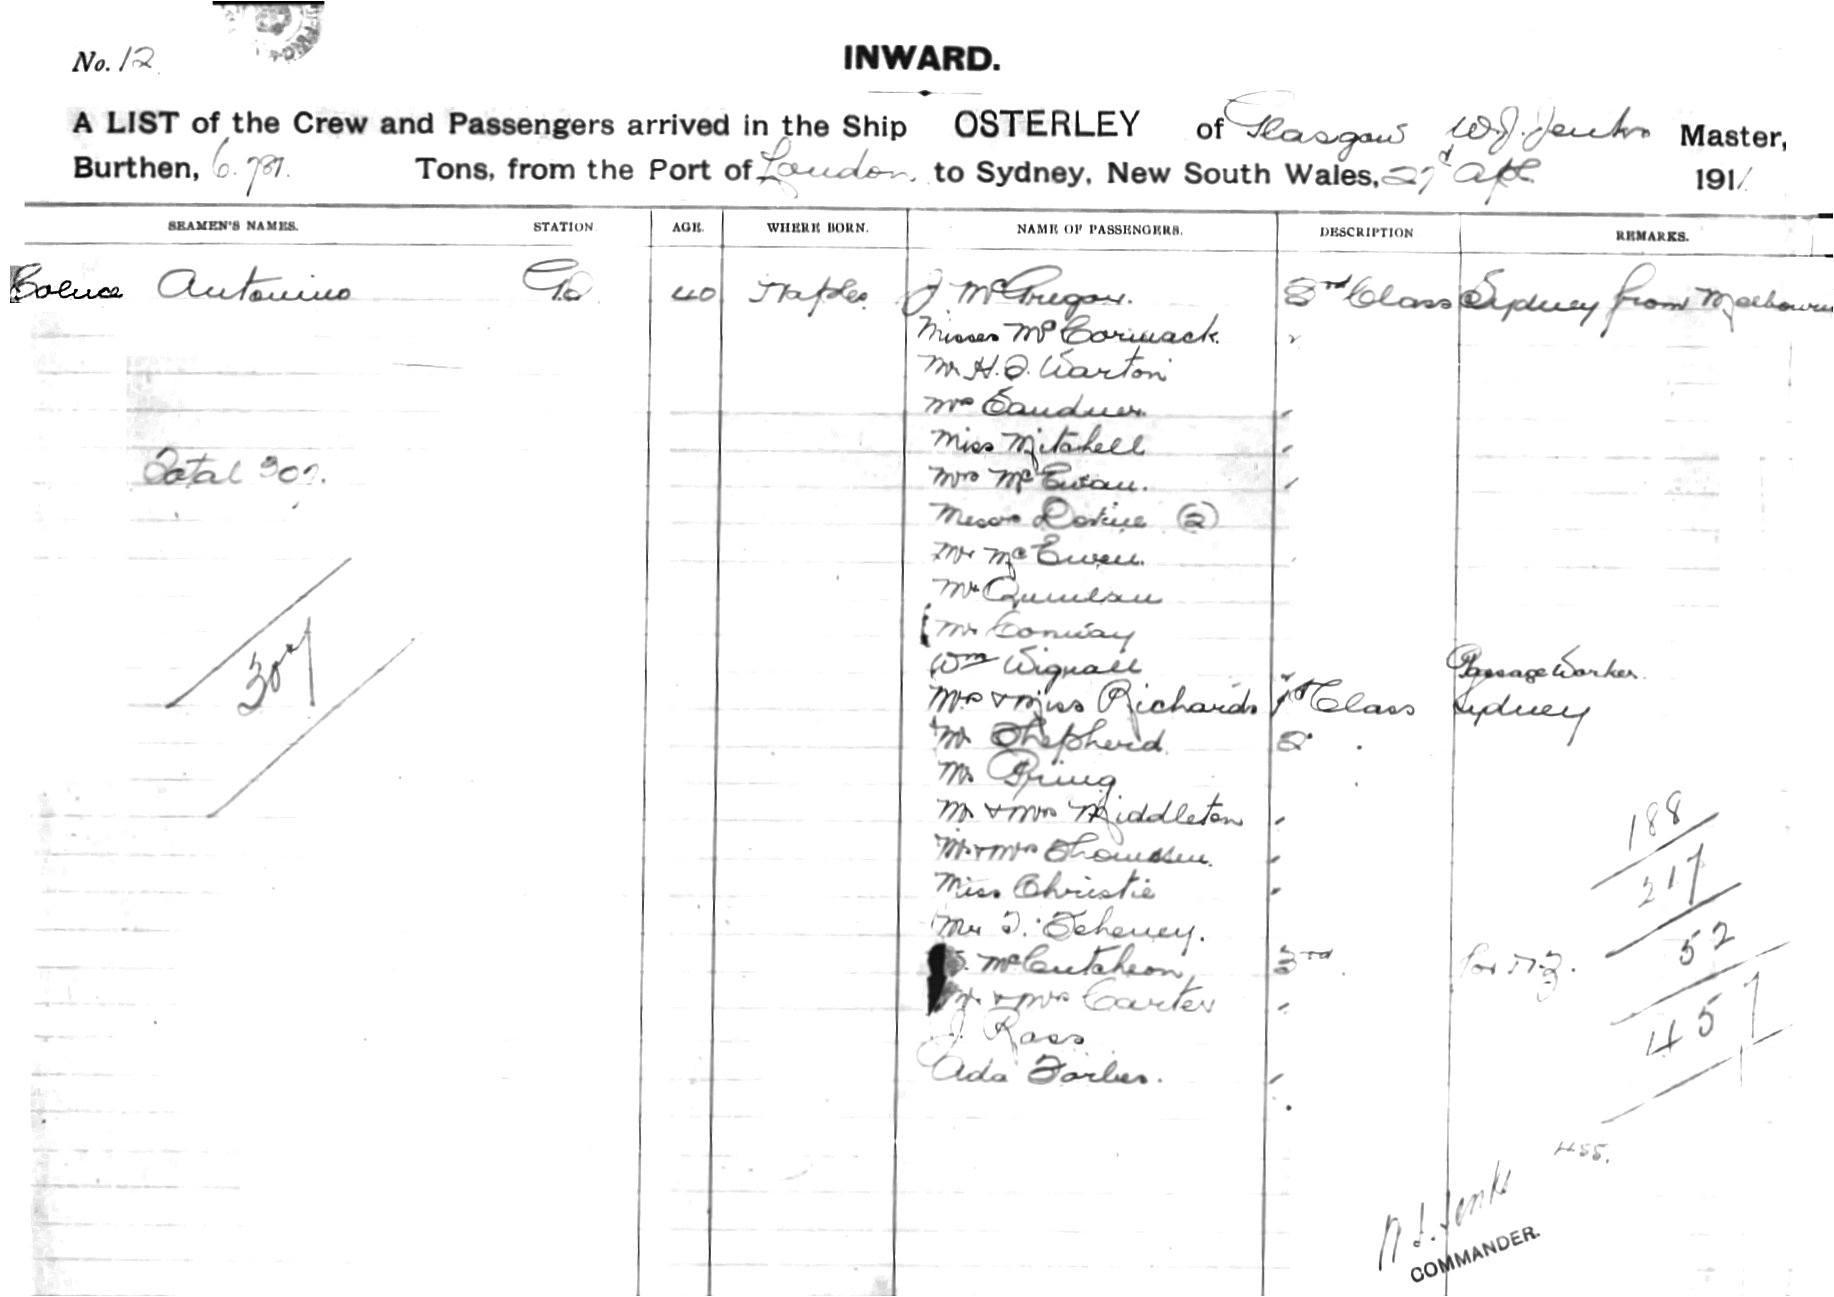 No. 12
INWARD.
A LIST of the Crew and Passengers arrived in the Ship OSTERLEY of Glasgow W. J. Jenks Master,
Burthen, 6.781. Tons, from the Port of London. to Sydney, New South Wales, 27 Apl. 1911
SEAMEN'S NAMES. STATION AGE. WHERE BORN. NAME OF PASSENGERS. DESCRIPTION REMARKS.
Antonino 40 Naples. J McGregor. 3rd Class Sydney from Melbourne
Misses McCormack. "
Mr H. Warton
Mrs Gardner. "
Miss Mitchell "
Total 307. Mrs McEwan. "
(2)
Mr McEwen.
Mr
Mr Conway
307 Wm Wignall Passage Worker.
Mrs + Miss Richards 1st Class Sydney
Mr Shepherd 2 "
Mr Pring
Mr + Mrs Middleton "
188
Mr + Mrs Thomson. "
217
Miss Christie "
Mr T. Feheney.
52
McCutcheon, 3rd. for N.Z.
Mr + Mrs Carter "
457
J. Ross
Ada Forbes. "
455.
W J. Jenks
COMMANDER.